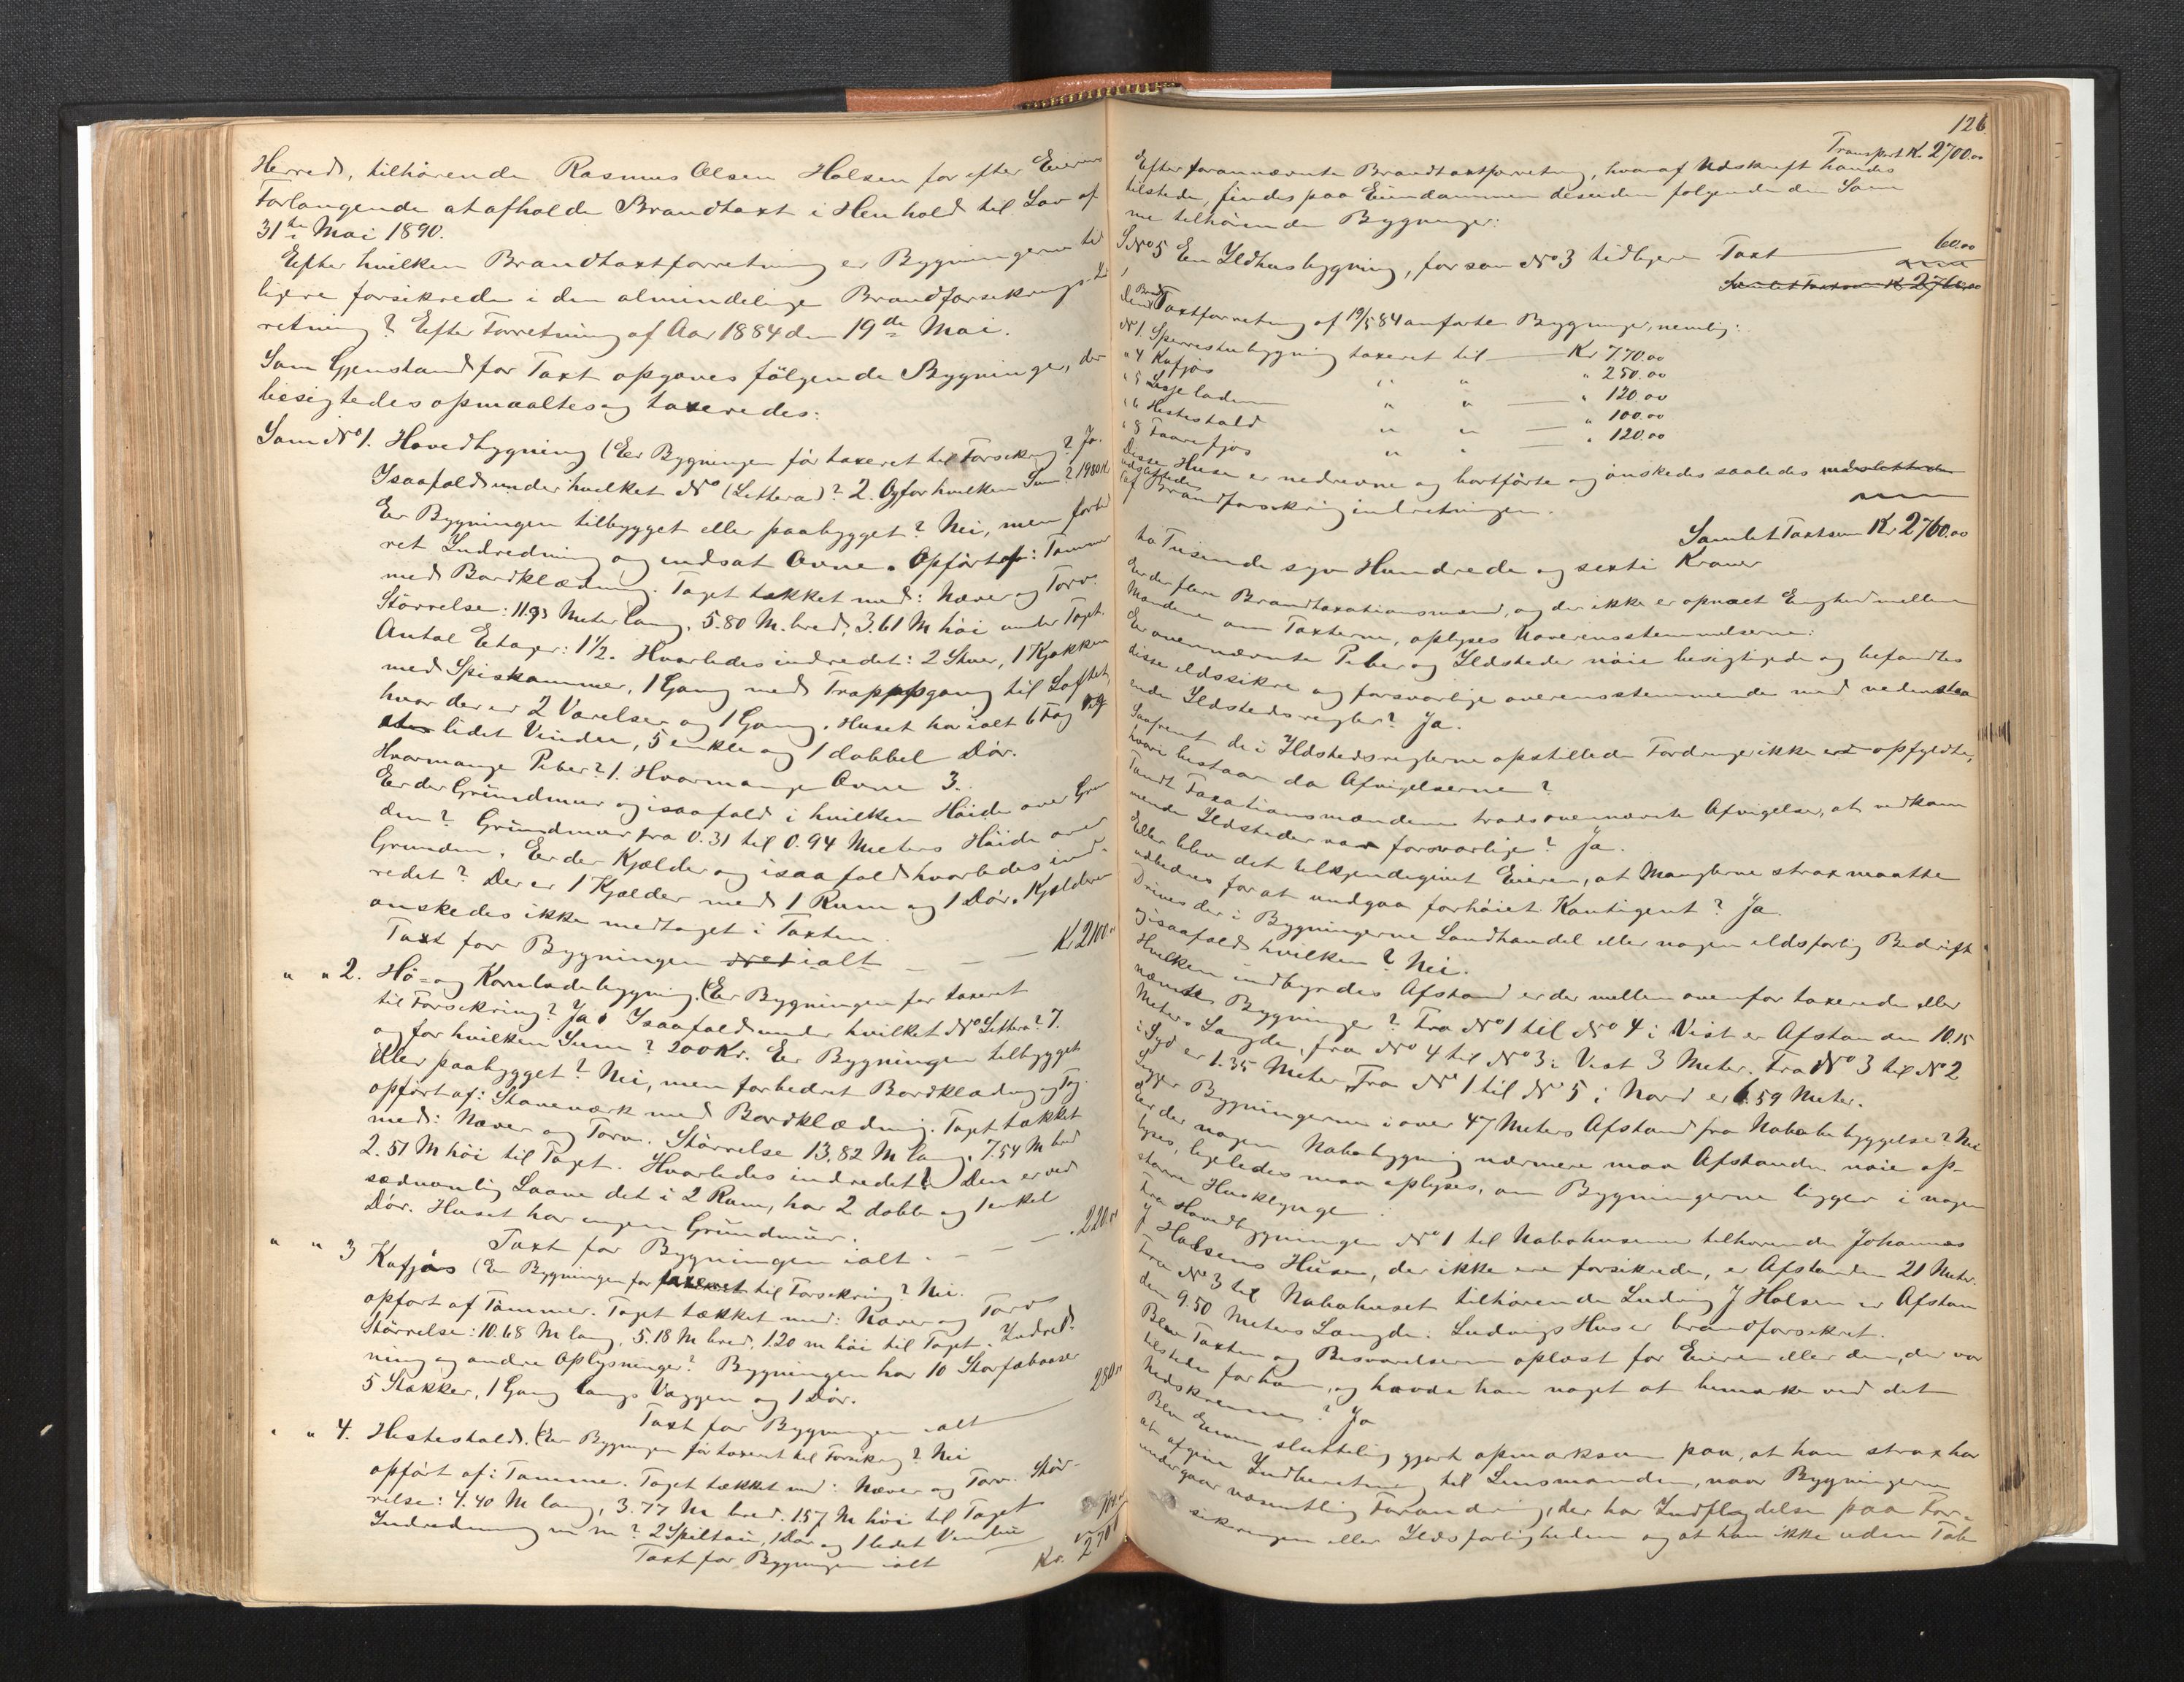 Herred, tilhörende Rasmus Olsen Holsen for efter Eierens
Forlangende at afholde Brandtaxt i Henhold til Lov af
31te Mai 1890.
Efter hvilken Brandtaxtforretning er Bygningerne tid
ligere forsikrede i den almindelige Brandforsikrings
retning? Efter Forretning af Aar 1884 den 19de Mai.
Som Gjenstand for Taxt opgaves fölgende Bygninger, der
besigtedes opmaaltes og taxeredes:
Som No 1. Hovedbygning (Er Bygningen för taxeret til Forsikring? Ja.
Isaafald under hvilket No (Littera)? 2. Og for hvilken Sum? 1980 Kr
Er Bygningen tilbygget eller paabygget? Nei, men forbed
ret Indredning og indsat Ovne. Opfört af: Tømmer
med Bordklædning. Taget tækket med: Næver og Torv.
Störrelse: 11.93 Meter lang, 5.80 M. bred, 3.61 M höi under Taget.
Antal Etager: 1½. Hvorledes indredet: 2 Stuer, 1 Kjøkken
med Spiskammer, 1 Gang med Trappgang til Loftet,
hvor der er 2 Værelser og 1 Gang. Huset har ialt 6 Fag og
et lidet Vindue, 5 enkle og 1 dobbel Dör.
Hvormange Piber? 1. Hvormange Ovne 3.
Er der Grundmur og isaafald i hvilken Höide over Grun
den? Grundmur fra 0.31 til 0.94 Meters Höide over
Grunden. Er der Kjælder og isaafald hvorledes ind-
redet? Der er 1 Kjælder med 1 Rum og 1 Dör. Kjælderen
ønskedes ikke medtaget i Taxten.
Taxt for Bygningen ialt - - - Kr 2100.00
" " 2. Hö- og Kornladebygning. (Er Bygningen før taxeret
til Forsikring? Ja. Isaafald under hvilket No Littera? 7.
og for hvilken Sum? 200 Kr. Er Bygningen tilbygget
eller paabygget? Nei, men forbedret Bordklædning og Tag.
opfört af: Staveværk med Bordklædning. Taget tækket
med: Næver og Torv. Störrelse 13.82 M lang. 7.54 M bred
2.51 M höi til Taget. Hvorledes indredet? Den er ved
sædvanlig Laave delt i 2 Rum, har 2 doble og 1 enkel
Dör. Huset har ingen Grundmur.
Taxt for Bygningen ialt - - - " 220.00
" " 3 Kofjøs (Er Bygningen før taxeret til Forsikring? Nei.
opfört af Tömmer. Taget tækket med: Næver og Torv
Störrelse: 10.68 M lang, 5.18 M bred, 1.20 m höi til Taget. Indred-
ning og andre Oplysninger? Bygningen har 10 Storfæbaase
5 Stakker, 1 Gang langs Væggen og 1 Dör.
Taxt for Bygningen ialt 280.00
" " 4. Hestestald. (Er Bygningen för taxeret til Forsikring? Nei
opfört af: Tømmer. Taget tækket med: Næver og Torv. Stör-
relse: 4.40 M lang, 3.77 M bred. 1.57 M höi til Taget
Indredning m m? 2 Spiltau, 1 Dör og 1 lidet Vindue
Taxt for Bygningen ialt
Kr. 2700
126.
Transport Kr. 2700.00
Efter forannævnte Brandtaxtforretning, hvoraf Udskrift havdes
tilstede, findes paa Eiendommen desuden følgende den Sam
me tilhörende Bygninger:
S. No 5 En Ildhusbygning, for som No 3 tidligere Taxt 60.00
Samlet Taxtsum Kr 2760.00
den Brandtaxtforretning af 19/5 84 anførte Bygninger, nemlig:
No 1. Sperrestuebygning taxeret til Kr 770.00
" 4 Kofjøs " " " 250.00
" 5 laden " " " 120.00
" 6 Hestestald " " " 100.00
" 8 Faarefjøs " " " 120.00
Disse Huse er nedrevne og bortförte og ønskedes saaledes
udslettede
af Brandforsikringsindretningen.
Samlet Taxtsum Kr 2760.00
to Tusinde syv Hundrede og sexti Kroner
Er der flere Brandtaxationsmænd, og der ikke er opnaaet Enighed mellem
Mændene om Taxterne, oplyses Uoverensstemmelserne:
Er ovennævnte Piber og Ildsteder nöie besigtigede og befandtes
disse ildssikre og forsvarlige overensstemmende med nedenstaa
ende Ildstedsregler? Ja.
Saafremt de i Ildstedsreglerne opstillede Fordringer ikke er opfyldte,
hvori bestaar da Afvigelserne?
Fandt Taxationsmændene trods ovennævnte Afvigelser, at vedkom
mende Ildsteder var forsvarlige? Ja.
Eller blev det tilkjendegivet Eieren, at Manglerne strax maatte
udbedres for at undgaa forhöiet Kontigent? Ja.
Drives der i Bygningerne Landhandel eller nogen ildsfarlig Bedrift
og isaafald hvilken? Nei.
Hvilken indbyrdes Afstand er der mellem ovenfor taxerede eller
nævnte Bygninger? Fra No 1 til No 4 i Vest er Afstanden 10.15
Meters Længde, fra No 4 til No 3 i Vest 3 Meter. Fra No 3 til No 2
i Syd er 1.35 Meter, Fra No 1 til No 5 i Nord er 6.59 Meter.
Ligger Bygningerne i over 47 Meters Afstand fra Nabobebyggelse? Nei
Er der nogen Nabobygning nærmere maa Afstanden nöie op-
lyses, ligeledes maa oplyses, om Bygningerne ligger i nogen
større Husklynge:
Fra Hovedbygningen No 1 til Nabohusene tilhørende Johannes
J Holsens Huse, der ikke ere forsikrede, er Afstanden 21 Meter.
Fra No 3 til Nabohuset tilhörende Ludvig J Holsen er Afstan
den 9.50 Meters Længde. Ludvigs Hus er brandforsikret.
Blev Taxten og Besvarelserne oplæst for Eieren eller den, der var
tilstede for ham, og havde han noget at bemærke ved det
Nedskrevne? Ja
Blev Eieren sluttelig gjort opmærksom paa, at han strax har
at afgive Indberetning til Lensmanden, naar Bygningerne
undergaar væsentlig Forandring, der har Indflydelse paa For-
sikringen eller Ildsfarligheden og at han ikke uden Tab